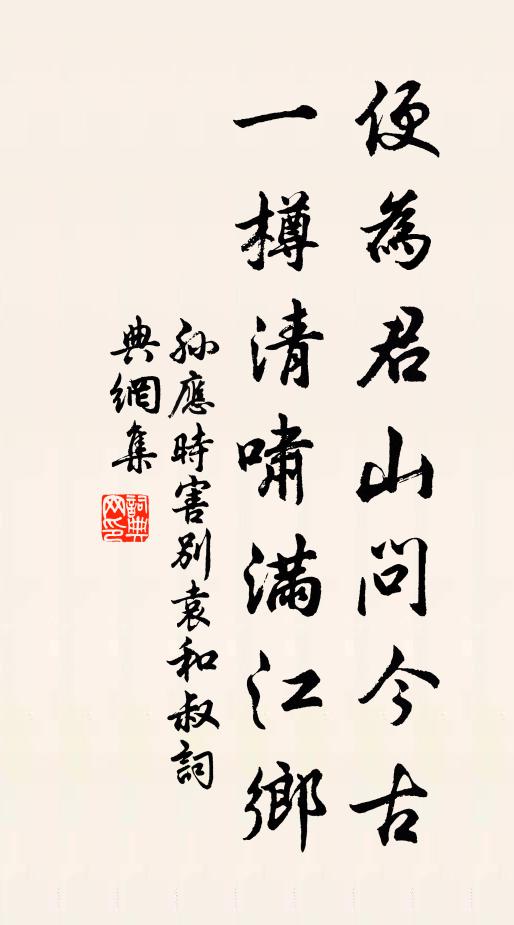 便為君山問今古
一樽清嘯滿江鄉
孙應時害別袁和叔詞
典網集
詞典
网印